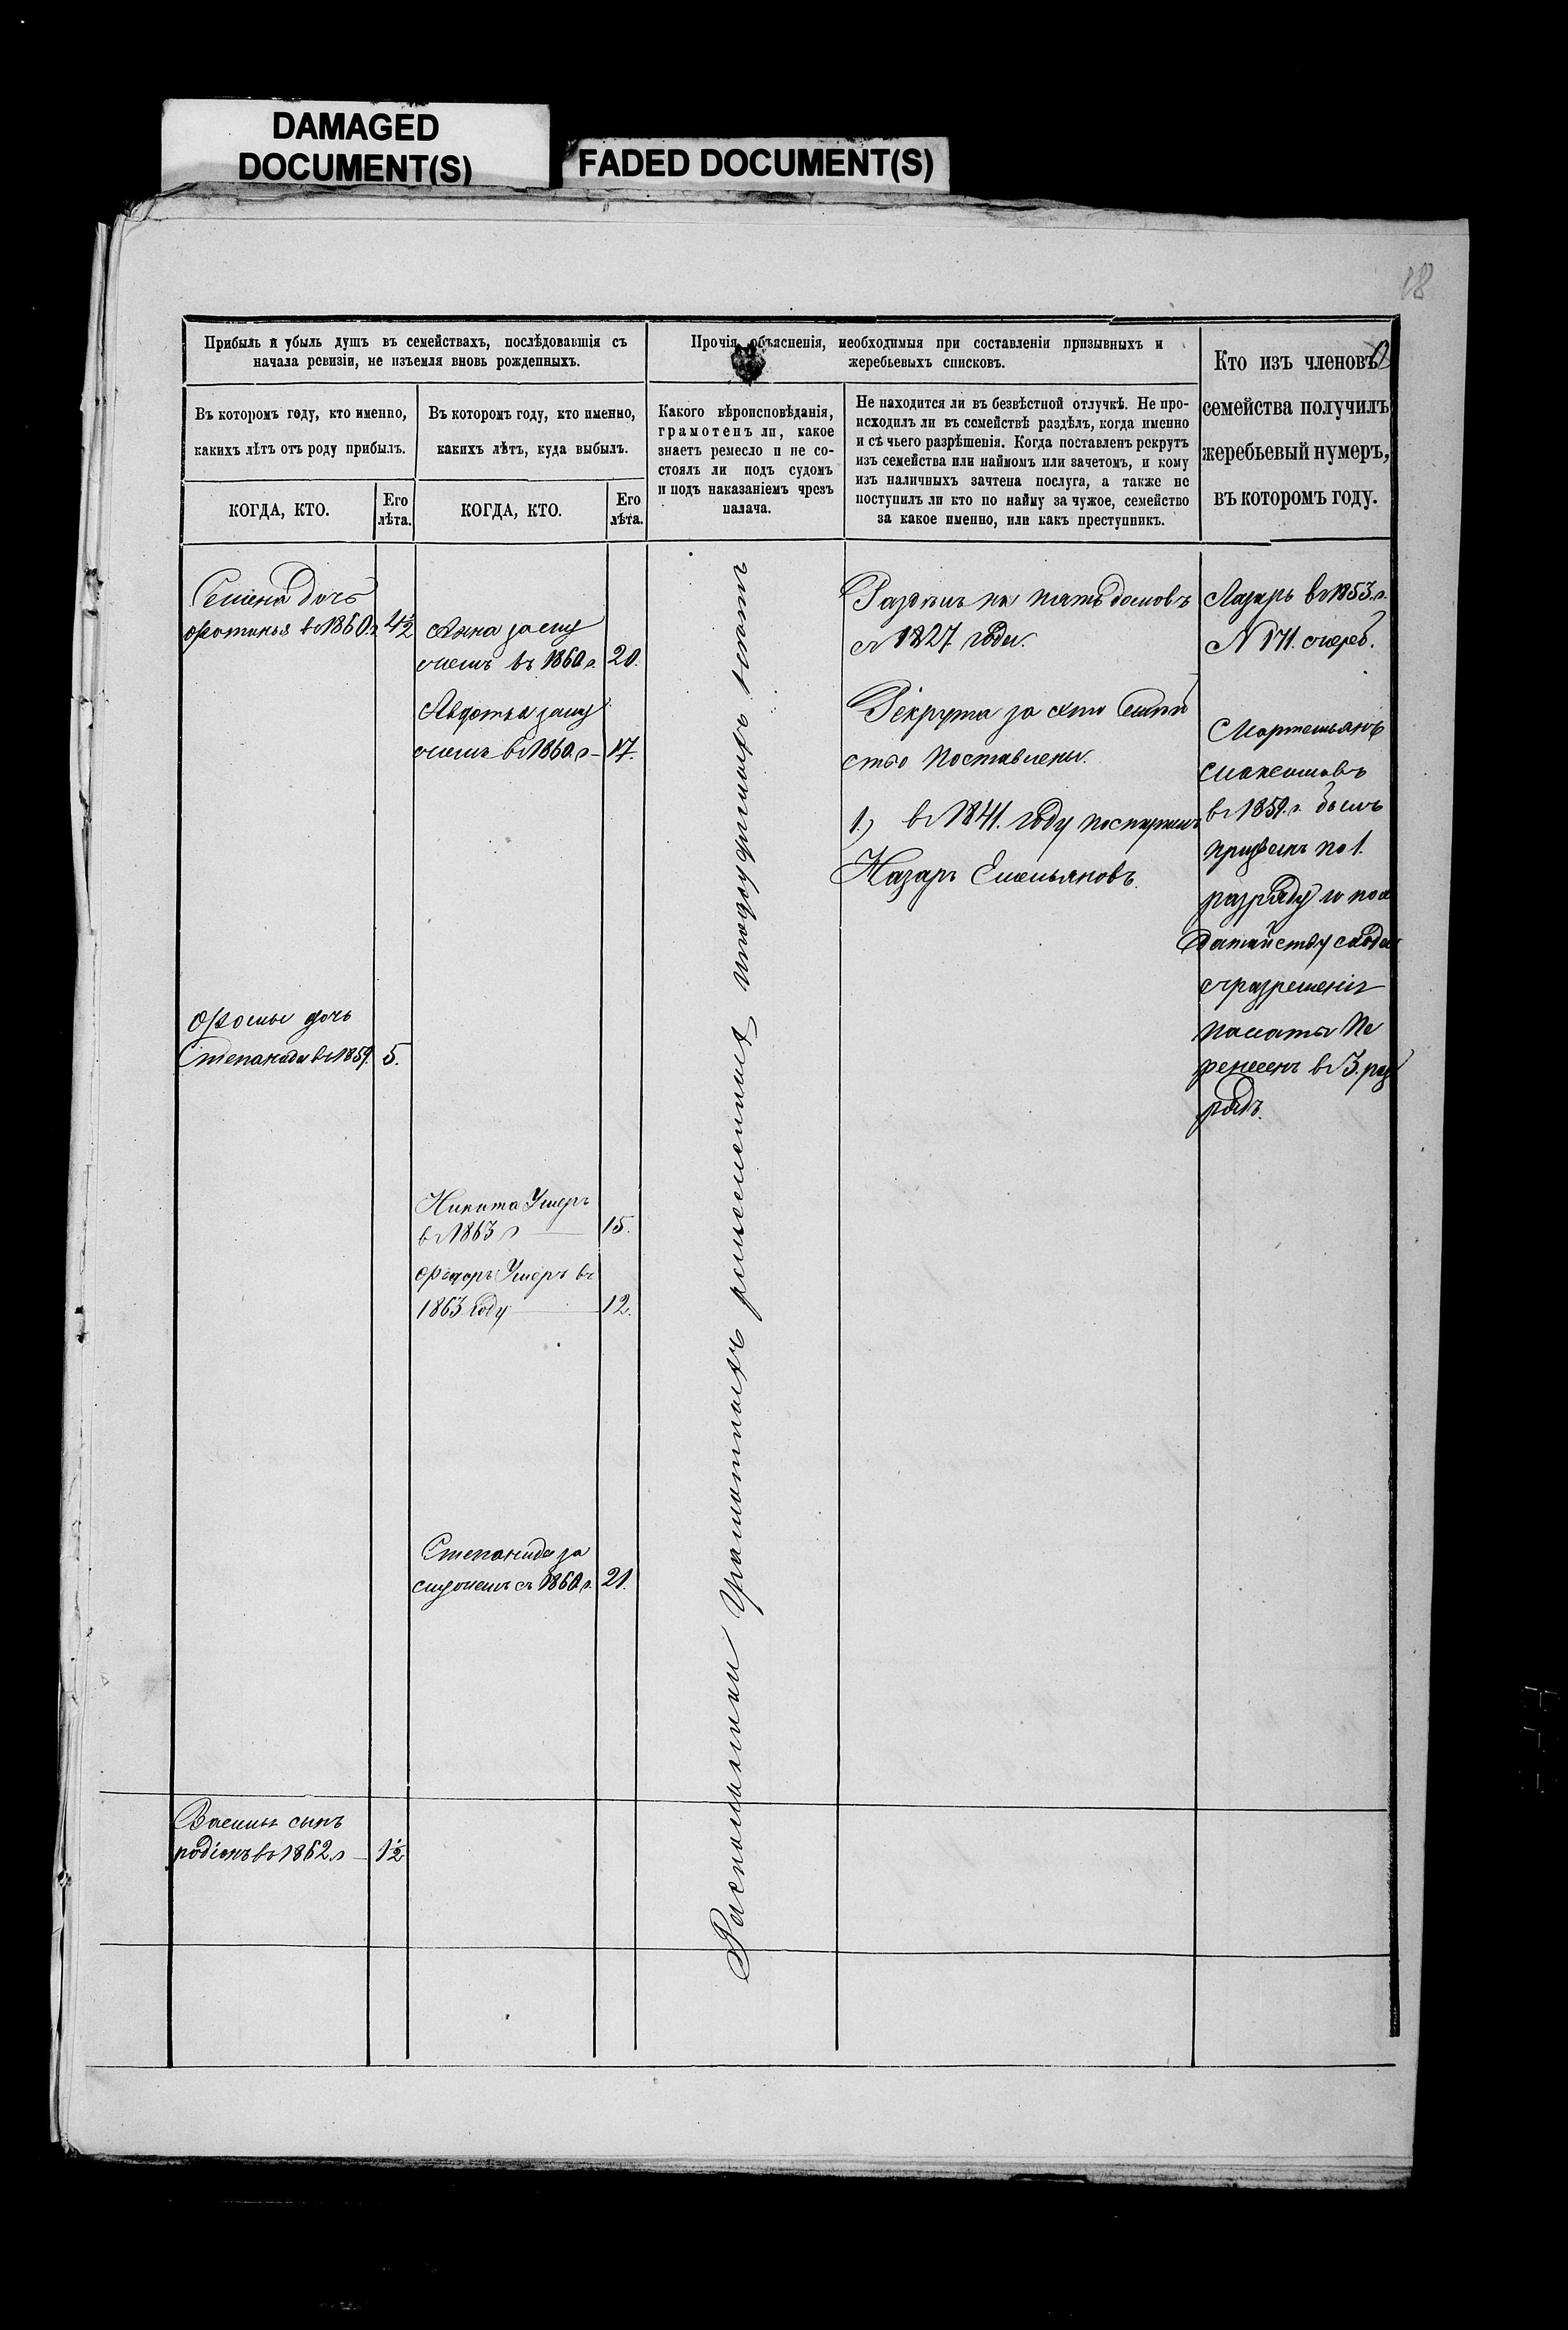 DAMAGED
DOCUMENT(S)
FADED DOCUMENT(S)
18
Прибыль и убыль душъ въ семействахъ, послѣдовавшія съ
начала ревизіи, не изъемля вновь рожденныхъ.
Прочія объясненія, необходимыя при составленіи призывныхъ и
жеребьевыхъ списковъ.
Кто изъ членовъ
семейства получилъ
жеребьевый нумеръ,
въ которомъ году.
Въ которомъ году, кто именно,
какихъ лѣтъ отъ роду прибылъ.
Въ которомъ году, кто именно,
какихъ лѣтъ, куда выбылъ.
Какого вѣроисповѣданія,
грамотенъ ли, какое
знаетъ ремесло и не со-
стоялъ ли подъ судомъ
и подъ наказаніемъ чрезъ
палача.
Не находится ли въ безвѣстной отлучкѣ. Не про-
исходилъ ли въ семействѣ раздѣлъ, когда именно
и съ чьего разрѣшенія. Когда поставленъ рекрутъ
изъ семейства или наймомъ или зачетомъ, и кому
изъ наличныхъ зачтена послуга, а также не
поступилъ ли кто по найму за чужое, семейство
за какое именно, или какъ преступникъ.
КОГДА, КТО.
Его
лѣта.
КОГДА, КТО.
Его
лѣта.
Семена дочь
Фотинья въ 1860 г 4½
Фомы дочь
Степанида въ 1859. 5.
Василья сынъ
родіонъ въ 1862 г 1½
Анна заму
жемъ въ 1860 г 20.
Авдотья заму
жемъ въ 1860 г 17.
Никита Умеръ
въ 1863 г 15.
Федоръ Умеръ въ
1863 году 12.
Степанида за
мужемъ съ 1860 г. 21.
Распольники Грамотныхъ ремесленныхъ подсудимыхъ нѣтъ
Раздѣлъ на пять домовъ
съ 1827 года.
Рекрута за Семей
ство Поставлены.
1) въ 1841. году поступилъ
Назаръ Емельяновъ.
Лазарь въ 1853. г.
N 171. жереб.
Мартемьянъ
Максимовъ
въ 1859. г. былъ
призванъ по 1.
разряду и по хо
датайству схода
съ разрешенія
палаты Пе
ренесенъ въ 3. раз
рядъ.